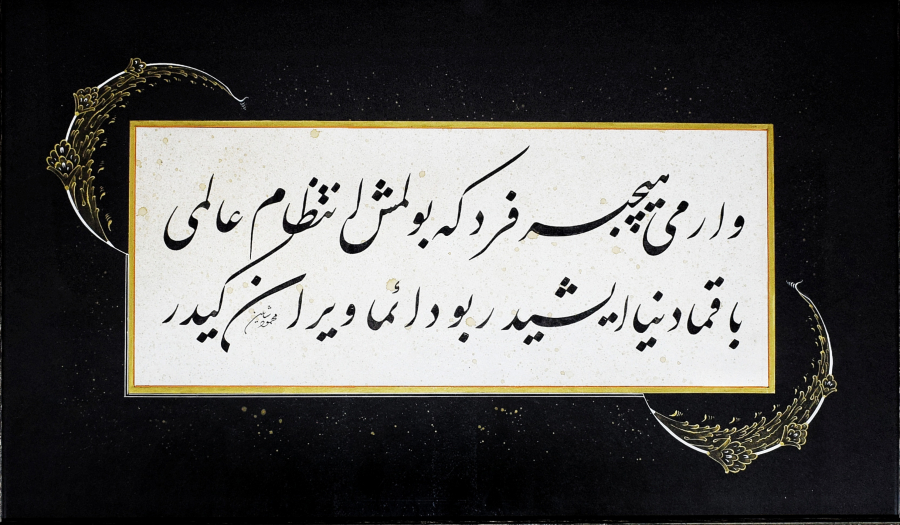 وارمی هیچ بر فرد که بولمش انتظام عالمی
باقما دنیا ایشیدر بو دائما ویران کیدر
محمود شاهین